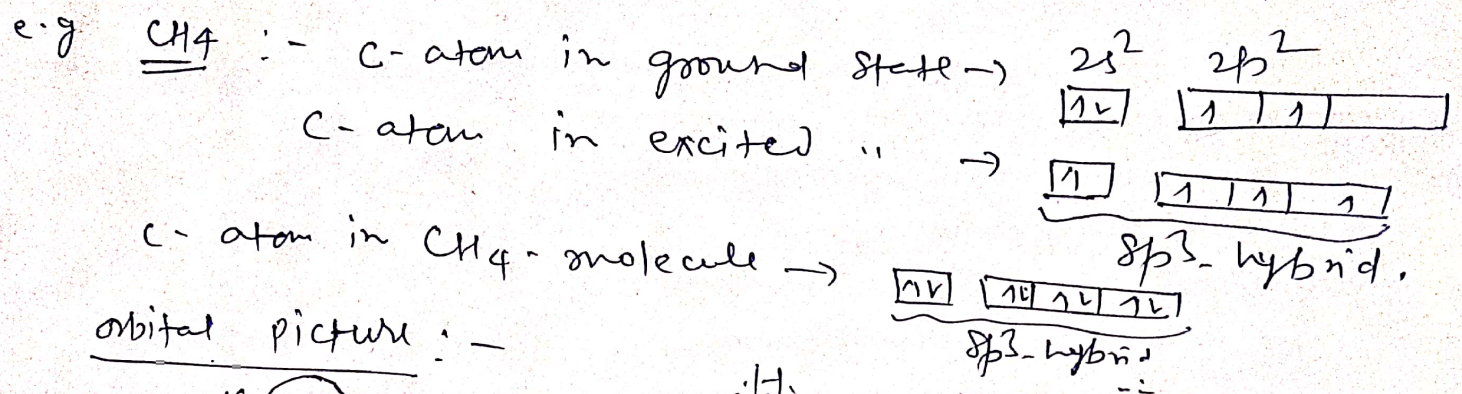 e.g CH4 :- C-atom in ground state → 2s² 2p²
1↓ 1 1
C-atom in excited " →
1 1 1 1
sp3-hybrid.
C-atom in CH4-molecule →
1↓ 1↓ 1↓ 1↓
sp3-hybrid
orbital picture :-
H